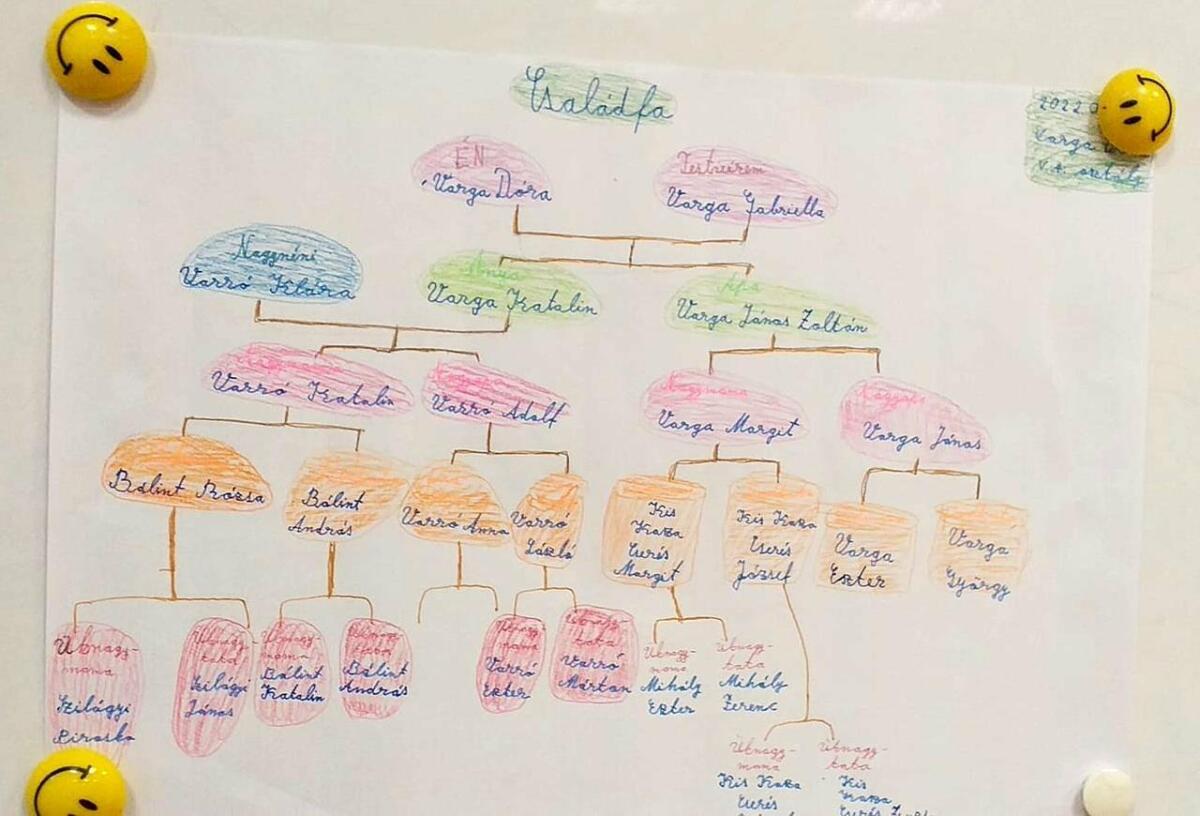 Családfa
2022
Varga
V. A. osztály
ÉN
Varga Dóra
Testvérem
Varga Gabriella
Nagynéni
Varró Klára
Anya
Varga Katalin
Apa
Varga János Zoltán
Varró Katalin
Varró Adolf
Nagymama
Varga Margit
Nagyapa
Varga János
Bálint Rózsa
Bálint
András
Varró Anna
Varró
László
Kis
Kasza
Cserés
Margit
Kis Kasza
Cserés
József
Varga
Eszter
Varga
György
Üknagy-
mama
Szilágyi
Piroska
Üknagy-
tata
Szilágyi
János
Üknagy-
mama
Bálint
Katalin
Üknagy-
tata
Bálint
András
Üknagy-
mama
Varró
Eszter
Üknagy-
tata
Varró
Márton
Üknagy-
mama
Mihály
Eszter
Üknagy-
tata
Mihály
Ferenc
Üknagy-
mama
Kis Kasza
Cserés
Üknagy-
tata
Kis
Kasza
Cserés